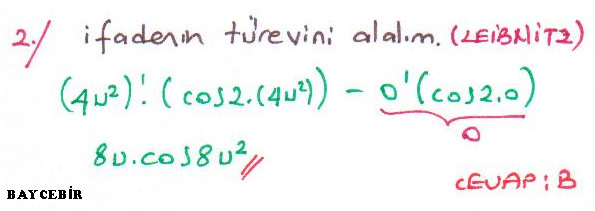 2./ ifadenin türevini alalım. (LEİBNİTZ)
(4u²)'. (cos2.(4u²)) - 0'(cos2.0)
0
8u.cos8u²//
CEVAP: B
BAYCEBİR